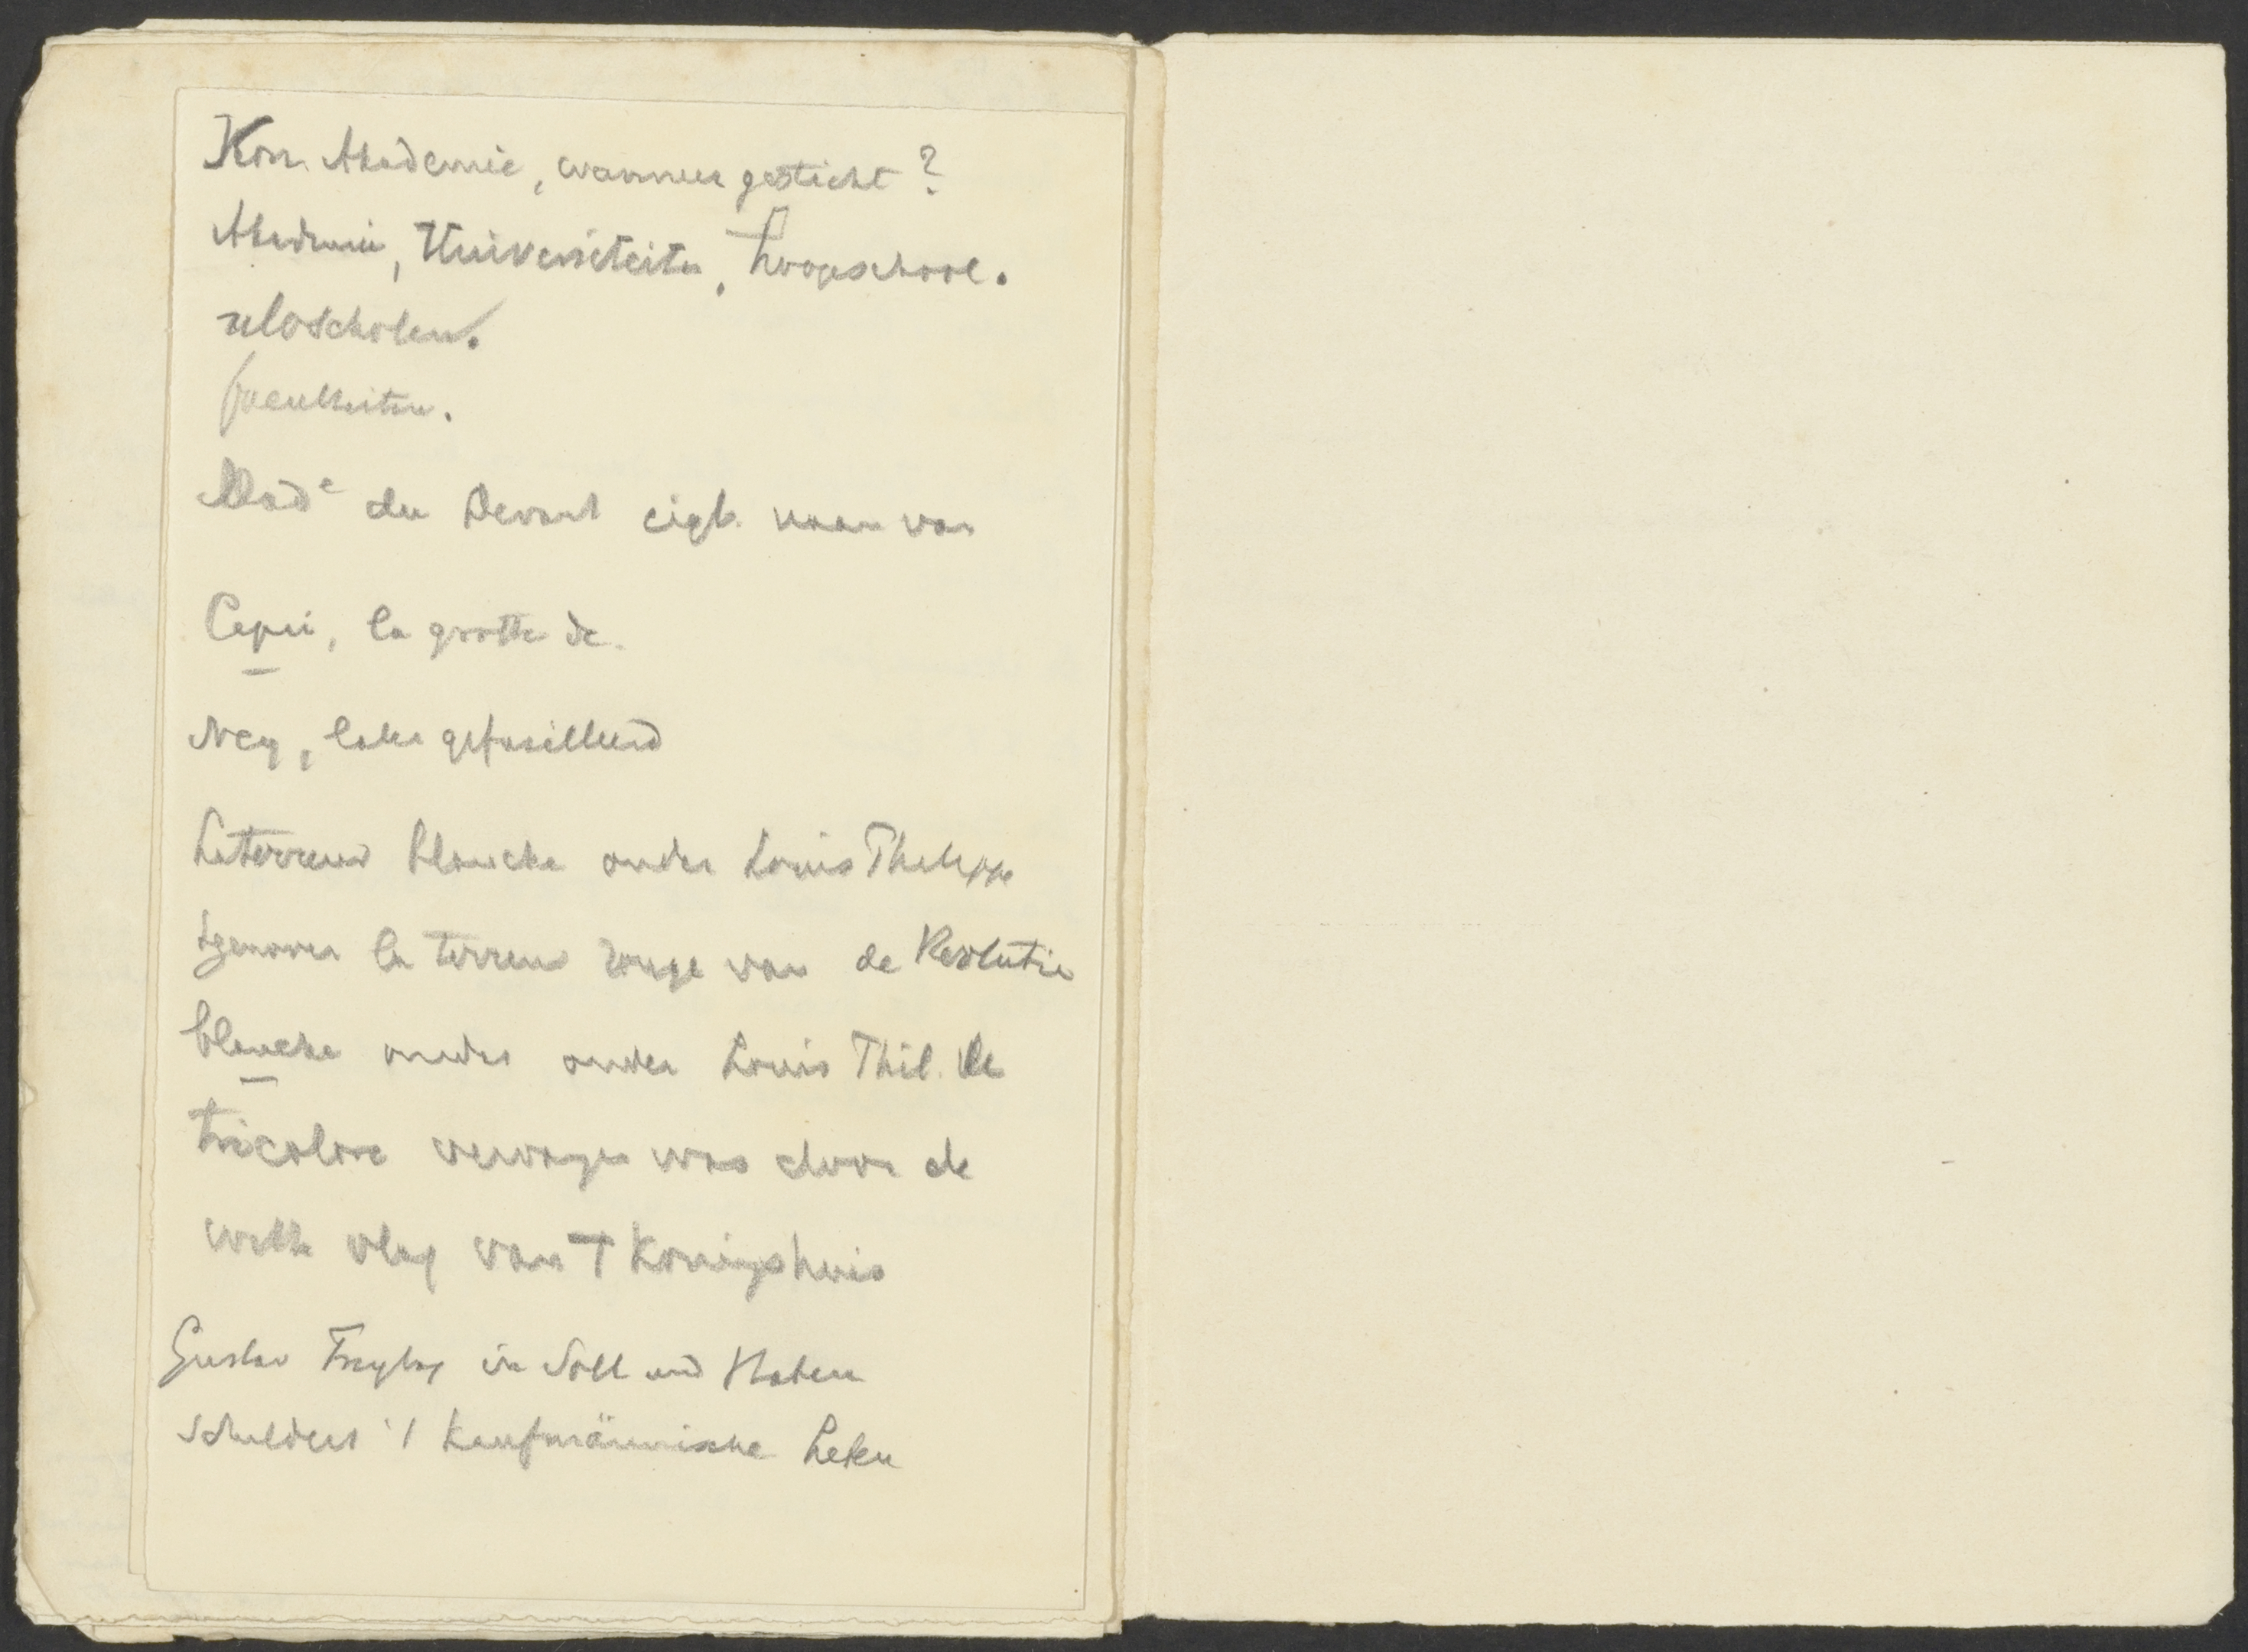 Kon. Akademie, wanneer gesticht?
Akademie, Universiteiten, hoogeschool.
uloscholen.
faculteiten.
Made du Devant eigl. naam van
Capri, la grotte de.
Ney, later gefusilleerd
La terreur blanche onder Louis Philippe
tgenover la terreur rouge van de Revolutie
blanche omdat onder Louis Phil. de
tricolore vervangen was door de
witte vlag van T Koningshuis
Gustav Freytag in Soll und Haben
schildert 't kaufmännische Leben